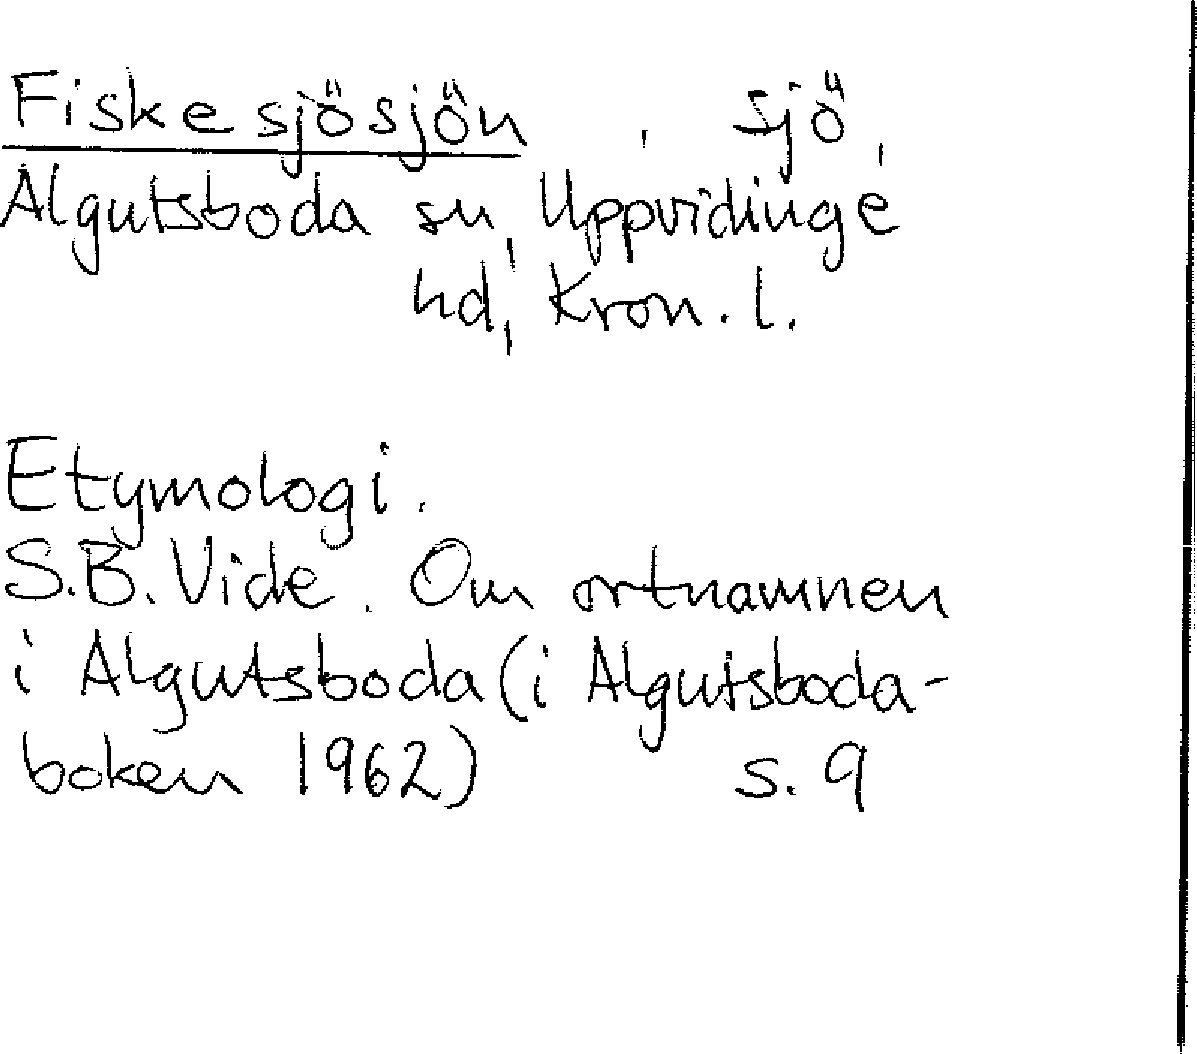 Fiskesjösjön, sjö,
Algutsboda sn, Uppvidinge
hd, Kron. l.
Etymologi.
S.B. Vide. Om ortnamnen
i Algutsboda (i Algutsboda-
boken 1962) s. 9